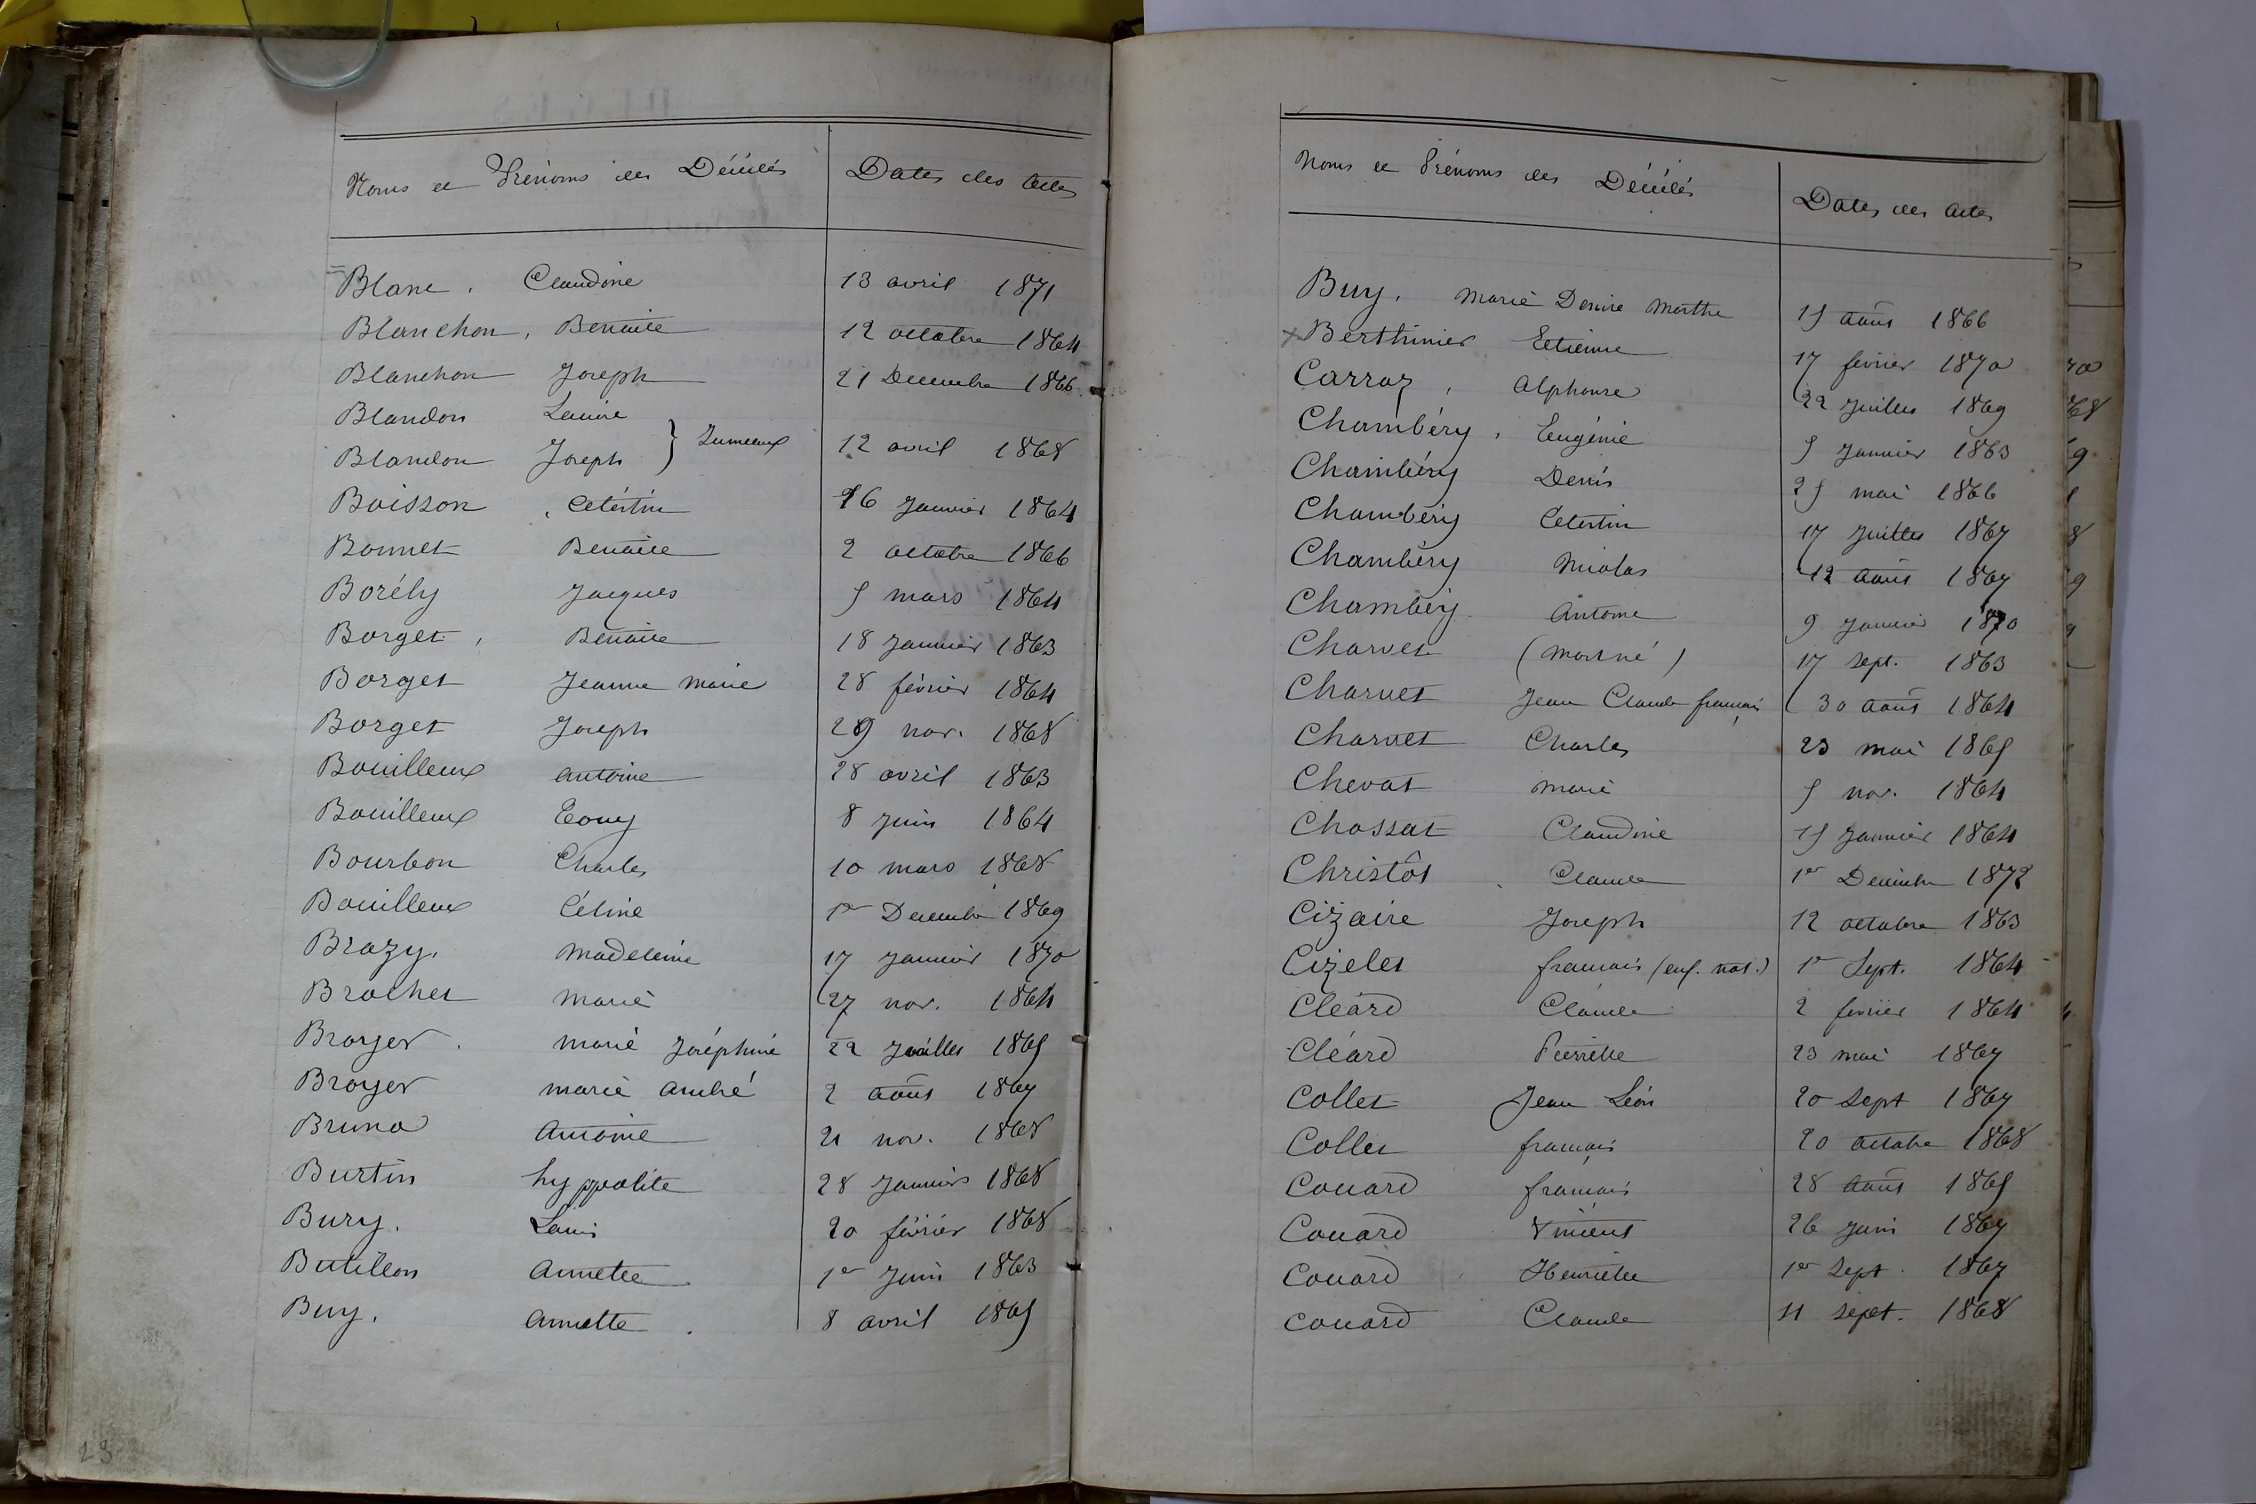 Noms et Prénoms des Décédés Dates des Actes
Blanc, Claudine 13 avril 1871
Blanchon, Benoite 12 octobre 1864
Blanchon Joseph 21 Décembre 1866
Blandon Laure
Blandon Joseph } Jumeaux 12 avril 1868
Boisson, Célestin 16 Janvier 1864
Bonnet Benoite 2 octobre 1866
Borély Jacques 5 mars 1864
Borget, Benoite 18 Janvier 1863
Borget Jeanne Marie 28 février 1864
Borget Joseph 29 nov. 1868
Bouilleux antoine 28 avril 1863
Bouilleux 8 Juin 1864
Bourbon Charles 10 mars 1868
Bouilleux Céline 1er Décembre 1869
Brazy, Madeleine 17 Janvier 1870
Brochet Marie 27 nov. 1864
Broyer. Marie Joséphine 22 Juillet 1865
Broyer marie André 2 août 1867
Bruno Antoine 21 nov. 1868
Burtin hyppolite 28 Janvier 1868
Bury. Louis 20 février 1868
Butillon Annette 1er Juin 1863
Buy. Annette. 8 avril 1865
23
Noms et Prénoms des Décédés Dates des Actes
Buy, Marie Denise Marthe 15 août 1866
x Berthinier Etienne 17 février 1870
Carraz, Alphonse 22 Juillet 1869
Chambéry, Eugénie 5 Janvier 1863
Chambéry Denis 25 mai 1866
Chambéry Célestin 17 Juillet 1867
Chambéry Nicolas 12 août 1867
Chambéry Antoine 9 Janvier 1870
Charvet (mort né) 17 sept. 1863
Charvet Jean Claude françois 30 août 1864
Charvet Charles 23 mai 1865
Chevat Marie 5 nov. 1864
Chossat Claudine 15 Janvier 1864
Christôt Claude 1er Décembre 1872
Cizaire Joseph 12 octobre 1863
Cizelet françois (enf. nat.) 1er Sept. 1864
Cléard Claude 2 février 1864
Cléard Pierrette 23 mai 1867
Collet Jean Léon 20 Sept 1867
Collet françois 20 octobre 1868
Couard françois 28 août 1865
Couard Vincent 26 Juin 1867
Couard Henriette 1er Sept. 1867
Couard Claude 11 sept. 1868